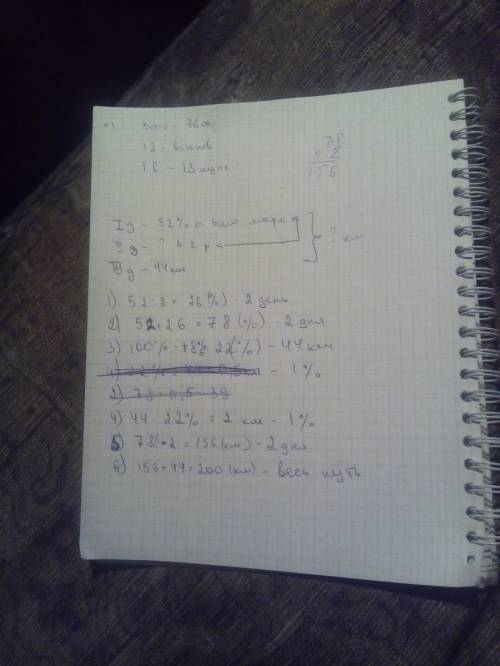 Всего - 76 м.
12 - вагонов
1 в - 13 купе
78
2
156
I д - 52% от всего марш
II д - ? в 2 р <
III д - 44 км
? км
1) 52 : 2 = 26 (%) - 2 день
2) 52 + 26 = 78 (%) - 2 дня
3) 100% - 78% 22(%) - 44 км
- 1%
2) 78 · 0,5 = 39
4) 44 : 22% = 2 км - 1%
5) 78 · 2 = 156 (км) - 2 дня
6) 156 + 44 = 200 (км) - весь путь